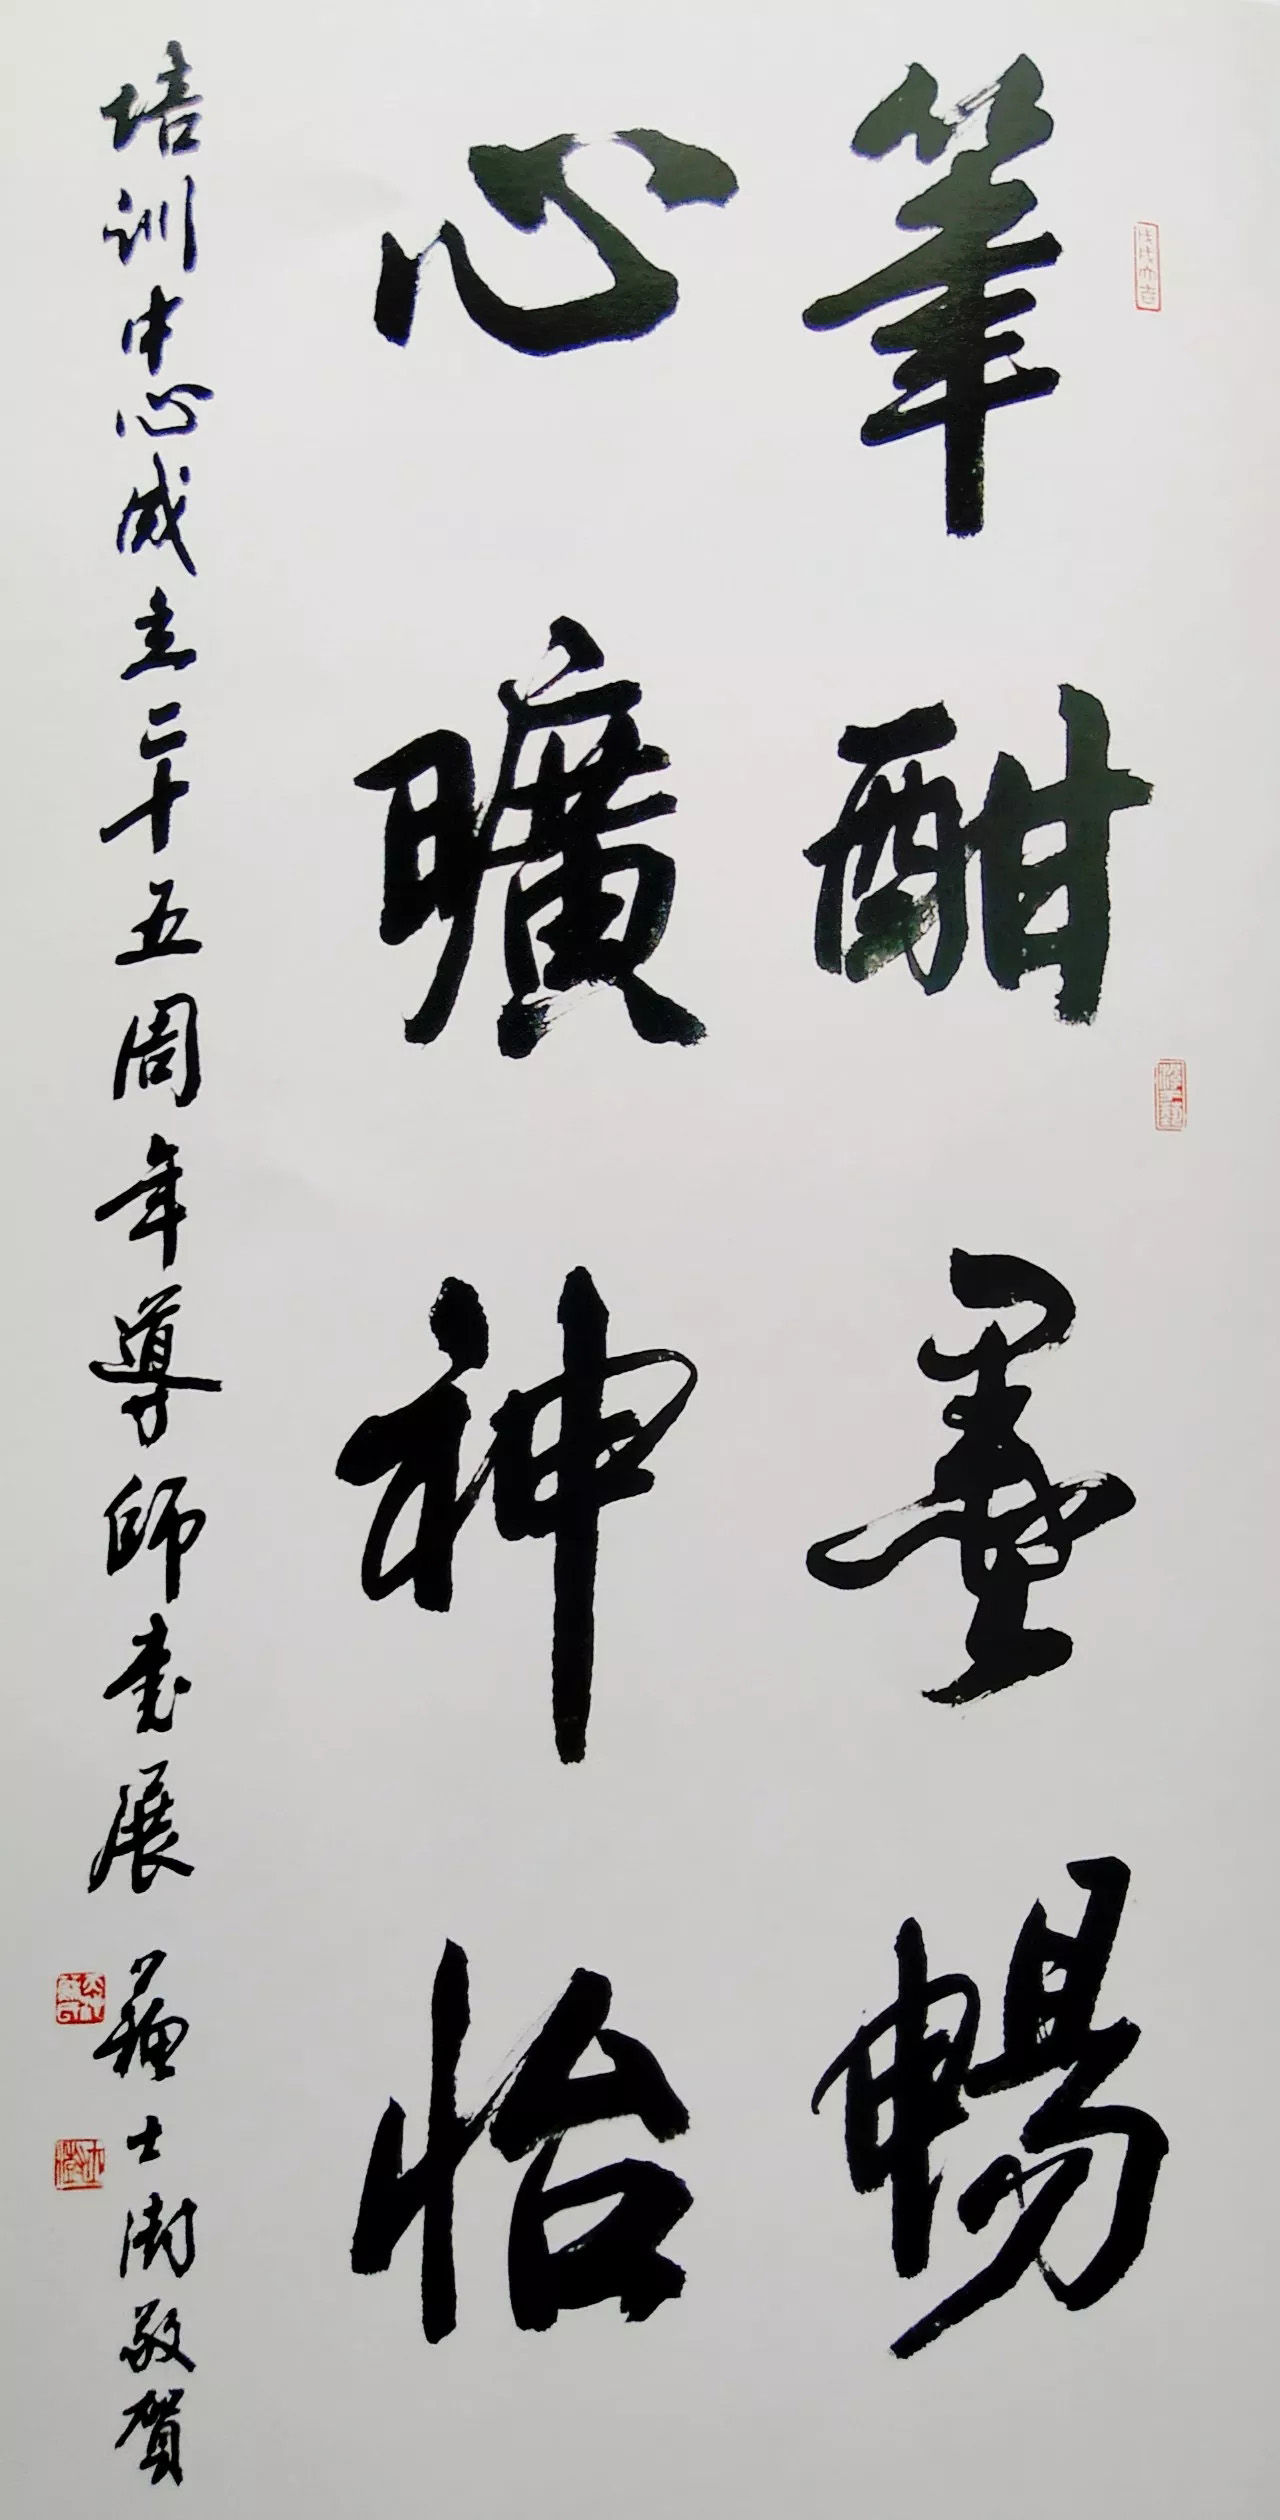 戊戌大吉
筆酣墨暢
心曠神怡
培訓中心成立二十五周年導師書展 蘇士澍敬賀